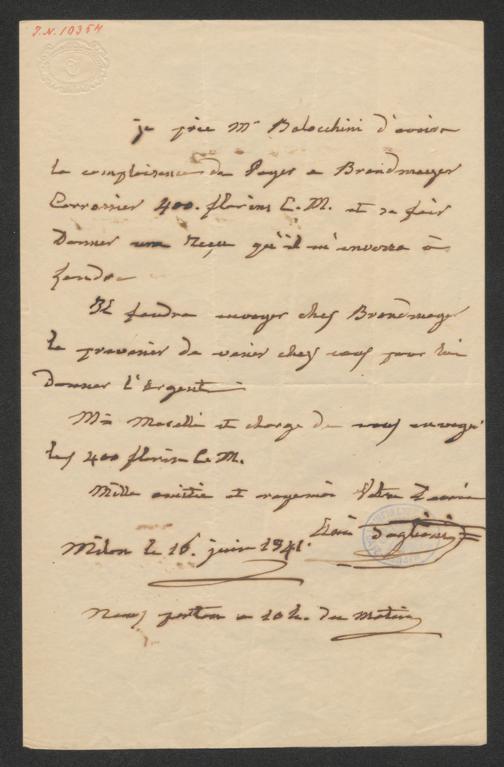 J.N. 10354
je prie Mr Balocchini d'avoire
la complaisence de Payer a Brandmayer
Carrossier 400. florins C.M. et se fair
Donner une reçu qu'il m'enverra à
Londre
Il faudra envoyer chez Brandmayer
le prevenir de venir chez vous pour lui
Donner l'Argent
Mr Morelli et charge de vous envoyé
les 400 florin C.M.
Mille amitié et Votre
Milan le 16 juin 1841.
Nous parton a 10 h. du Matin